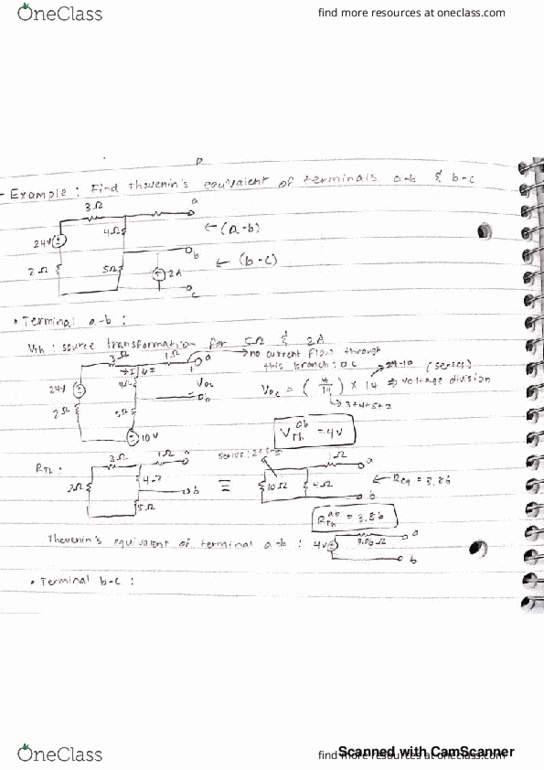 OneClass
find more resources at oneclass.com
- Example: Find thevenin's equivalent of terminals a-b & b-c
3Ω
a
4Ω
← (a-b)
24V
b
2Ω
5Ω
2A
← (b-c)
c
• Terminal a-b:
Vth: source transformation for 5Ω & 2A
3Ω
1Ω
a
no current flow through
this branch: OC
24-10 (series)
24V
4Ω
Voc
Voc = (4/14) × 14 ⇒ voltage division
2Ω
b
3+4+5+2
5Ω
10V
V ab Th = 4V
RTh:
3Ω
1Ω
a
series:
1Ω
a
2Ω
4Ω
b
≡
10Ω
4Ω
← Req = 3.86
b
5Ω
R ab Th = 3.86
Thevenin's equivalent of terminal a-b:
4V
3.86Ω
a
b
• Terminal b-c:
OneClass
find more resources at oneclass.com
Scanned with CamScanner